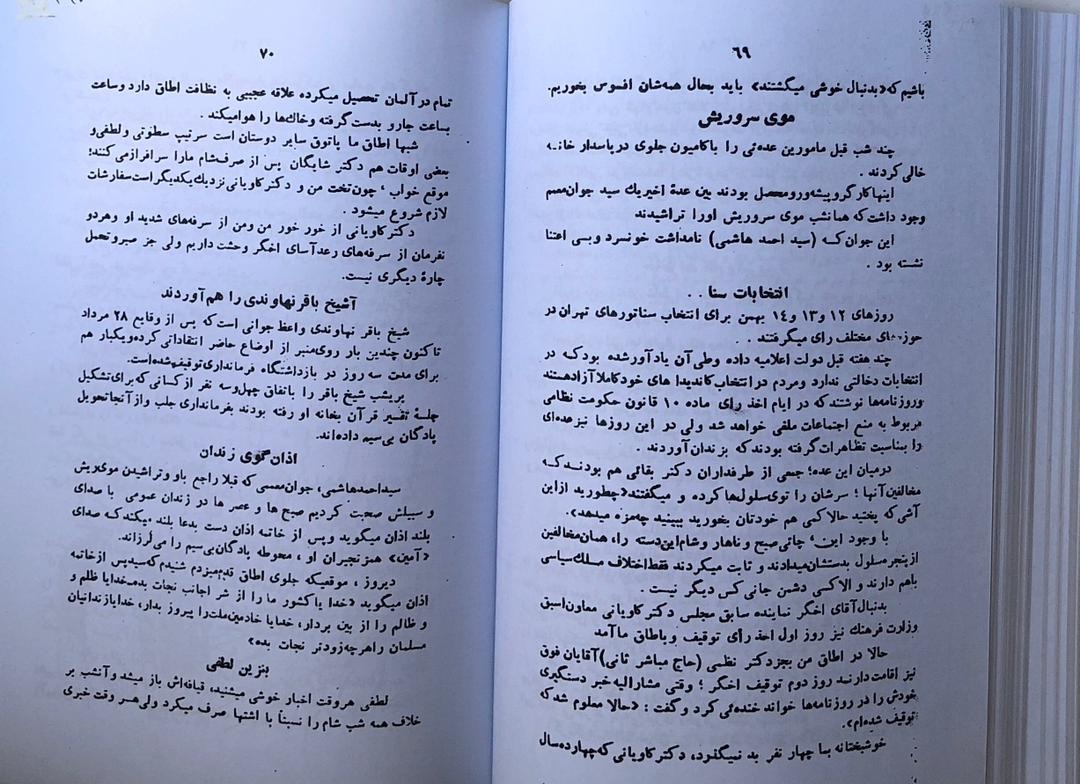 ٦٩
باشیم که «بدنبال خوشی میگشتند» باید بحال همه‌شان افسوس بخوریم.
موی سروریش
چند شب قبل مامورین عده‌ئی را باکامیون جلوی درپاسدار خانه
خالی کردند .
اینها کارگروپیشه‌ورومحصل بودند بین عدهٔ اخیریك سید جوان‌معمم
وجود داشت که همانشب موی سروریش اورا تراشیدند
این جوان‌که (سید احمد هاشمی) نامداشت خونسرد وبی اعتنا
نشسته بود .
انتخابات سنا . .
روزهای ١٢ و١٣و ١٤ بهمن برای انتخاب سناتورهای تهران در
حوزه‌های مختلف رای میگرفتند . .
چند هفته قبل دولت اعلامیه داده وطی‌آن یادآورشده بودکه در
انتخابات دخالتی ندارد ومردم درانتخاب کاندیدا های خودکاملا آزادهستند
وروزنامه‌ها نوشتند که در ایام اخذ رای ماده ١٠ قانون حکومت نظامی
مربوط به منع اجتماعات ملغی خواهد شد ولی در این روزها نیزعده‌ای
را بمناسبت تظاهرات گرفته بودند که بزندان آوردند .
درمیان این عده؛ جمعی از طرفداران دکتر بقائی هم بودند که
مخالفین آنها ؛ سرشان را توی سلول‌ها کرده و میگفتند «چطورید ازاین
آشی‌که پختید حالا کمی هم خودتان بخورید ببینید چه‌مزه میدهد».
با وجود این؛ چائی صبح و ناهار وشام این‌دسته را، همان‌مخالفین
ازپنجره‌سلول بدستشان‌میدادند و ثابت میکردند فقط اختلاف مسلك‌سیاسی
باهم دارند و الا کسی دشمن جانی کس دیگر نیست .
بدنبال‌آقای اخگر نماینده سابق مجلس دکتر کاویانی معاون‌اسبق
وزارت فرهنك نیز روز اول اخذ رای توقیف وباطاق ما آمد
حالا در اطاق من بجزدکتر نظمی (حاج مباشر ثانی)آقایان فوق
نیز اقامت دارند روز دوم توقیف اخگر ؛ وقتی مشارالیه خبر دستگیری
خودش را در روزنامه‌ها خواند خنده‌ئی کرد و گفت : «حالا معلوم شد که
توقیف شده‌ام».
خوشبختانه بما چهار نفر بد نمیگذرد، دکتر کاویانی که چهارده سال
٧٠
تمام در آلمان تحصیل میکرده علاقه عجیبی به نظافت اطاق دارد وساعت
بساعت جارو بدست گرفته وخاك‌ها را هوامیکند .
شبها اطاق ما پاتوق سایر دوستان است سرتیپ سطوتی ولطفی‌و
بعضی اوقات هم دکتر شایگان پس از صرف‌شام مارا سرافرازمی‌کنند؛
موقع خواب ؛ چون‌تخت من و دکتر کاویانی نزدیك‌یکدیگر است‌سفارشات
لازم شروع میشود .
دکتر کاویانی از خور خور من ومن از سرفه‌های شدید او وهردو
نفرمان از سرفه‌های رعدآسای اخگر وحشت داریم ولی جز صبروتحمل
چارهٔ دیگری نیست.
آشیخ باقر نهاوندی را هم‌آوردند
شیخ باقر نهاوندی واعظ جوانی است که پس از وقایع ٢٨ مرداد
تاکنون چندین بار روی‌منبر از اوضاع حاضر انتقاداتی کرده‌ویکبار هم
برای مدت سه روز در بازداشتگاه فرمانداری‌توقیف‌شده‌است.
پریشب شیخ باقر را باتفاق چهل‌وسه نفر از کسانی که برای تشکیل
جلسهٔ تفسیر قرآن بخانه او رفته بودند بفرمانداری جلب وازآنجا تحویل
پادگان بی‌سیم داده‌اند.
اذان گوی زندان
سیداحمدهاشمی، جوان‌معممی که قبلا راجع باو وتراشیدن موی‌ریش
و سبیلش صحبت کردیم صبح ها و عصر ها در زندان عمومی با صدای
بلند اذان میگوید و پس از خاتمه اذان دست بدعا بلند میکند که صدای
«آمین» همزنجیران او ، محوطه پادگان بی‌سیم را می‌لرزاند.
دیروز ، موقعیکه جلوی اطاق قدم‌میزدم شنیدم که سیدپس ازخاتمه
اذان میگوید «خدا یا کشور ما را از شر اجانب نجات بده‌ـخدایا ظلم و
و ظالم را از بین بردار، خدایا خادمین‌ملت‌را پیروز بدار، خدایازندانیان
مسلمان راهرچه‌زودتر نجات بده»
بنزین لطفی
لطفی هروقت اخبار خوشی میشنید، قیافه‌اش باز میشد وآنشب بر
خلاف همه شب شام را نسبتاً با اشتها صرف میکرد ولی‌هر وقت خبری